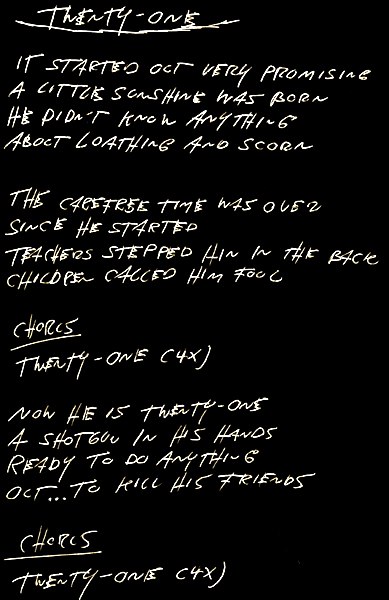 TWENTY-ONE
IT STARTED OUT VERY PROMISING
A LITTLE SUNSHINE WAS BORN
HE DIDN'T KNOW ANYTHING
ABOUT LOATHING AND SCORN
THE CAREFREE TIME WAS OVER
SINCE HE STARTED
TEACHERS STEPPED HIM IN THE BACK
CHILDREN CALLED HIM FOUL
CHORUS
TWENTY-ONE (4X)
NOW HE IS TWENTY-ONE
A SHOTGUN IN HIS HANDS
READY TO DO ANYTHING
OUT...TO KILL HIS FRIENDS
CHORUS
TWENTY-ONE (4X)